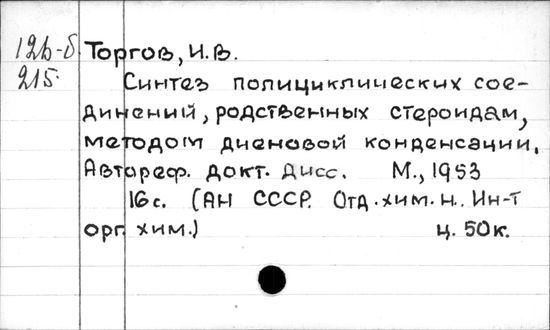 12b-б Торгов, И.В.
215. Синтез полициклических сое-
динений, родственных стероидам,
методом диеновой конденсации.
Автореф. докт. дисс. М., 1953
16 с. (АН СССР. Отд. хим. н. Ин-т
орг. хим.) ц. 50к.